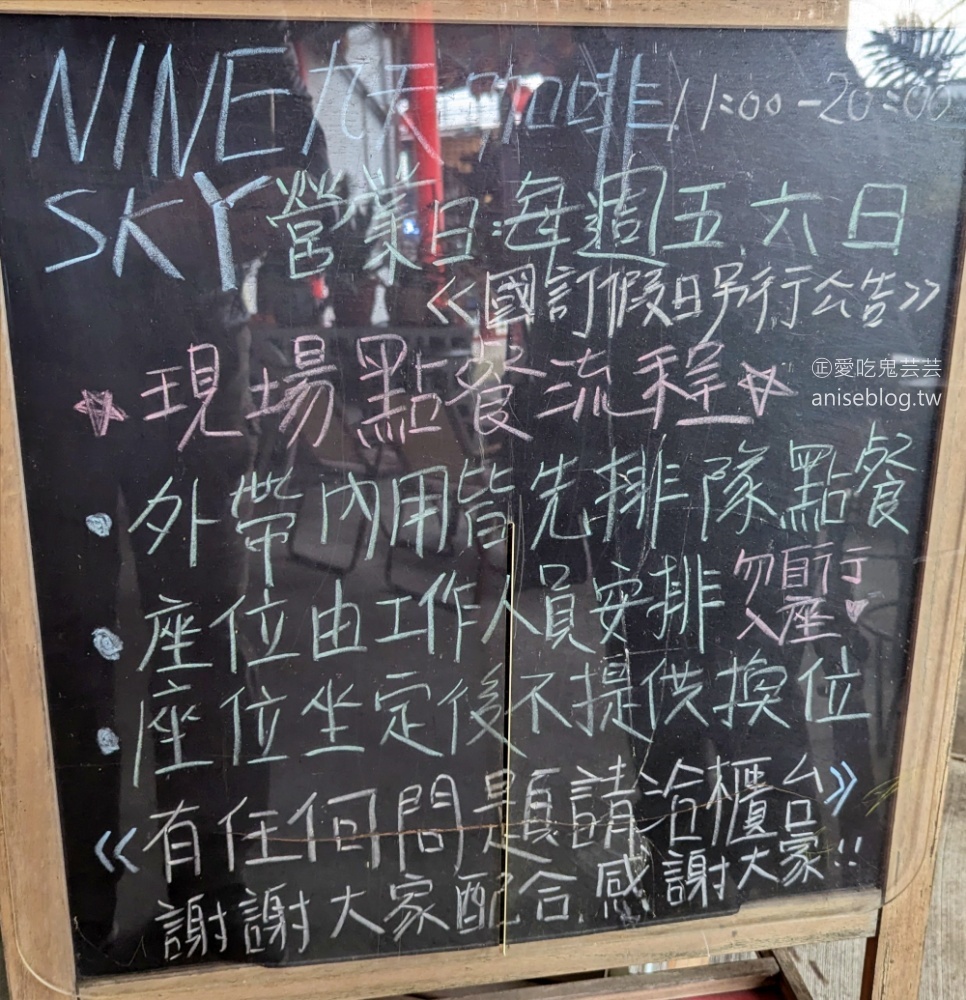 NINE 九天 咖啡 11:00-20:00
SKY 營業日:每週五、六、日
<<國訂假日另行公告>>
現場點餐流程
正 愛吃鬼芸芸
aniseblog.tw
• 外帶內用皆先排隊點餐
• 座位由工作人員安排 勿自行入座
• 座位坐定後不提供換位
<<有任何問題請洽櫃台>>
謝謝大家配合.感謝大家!!